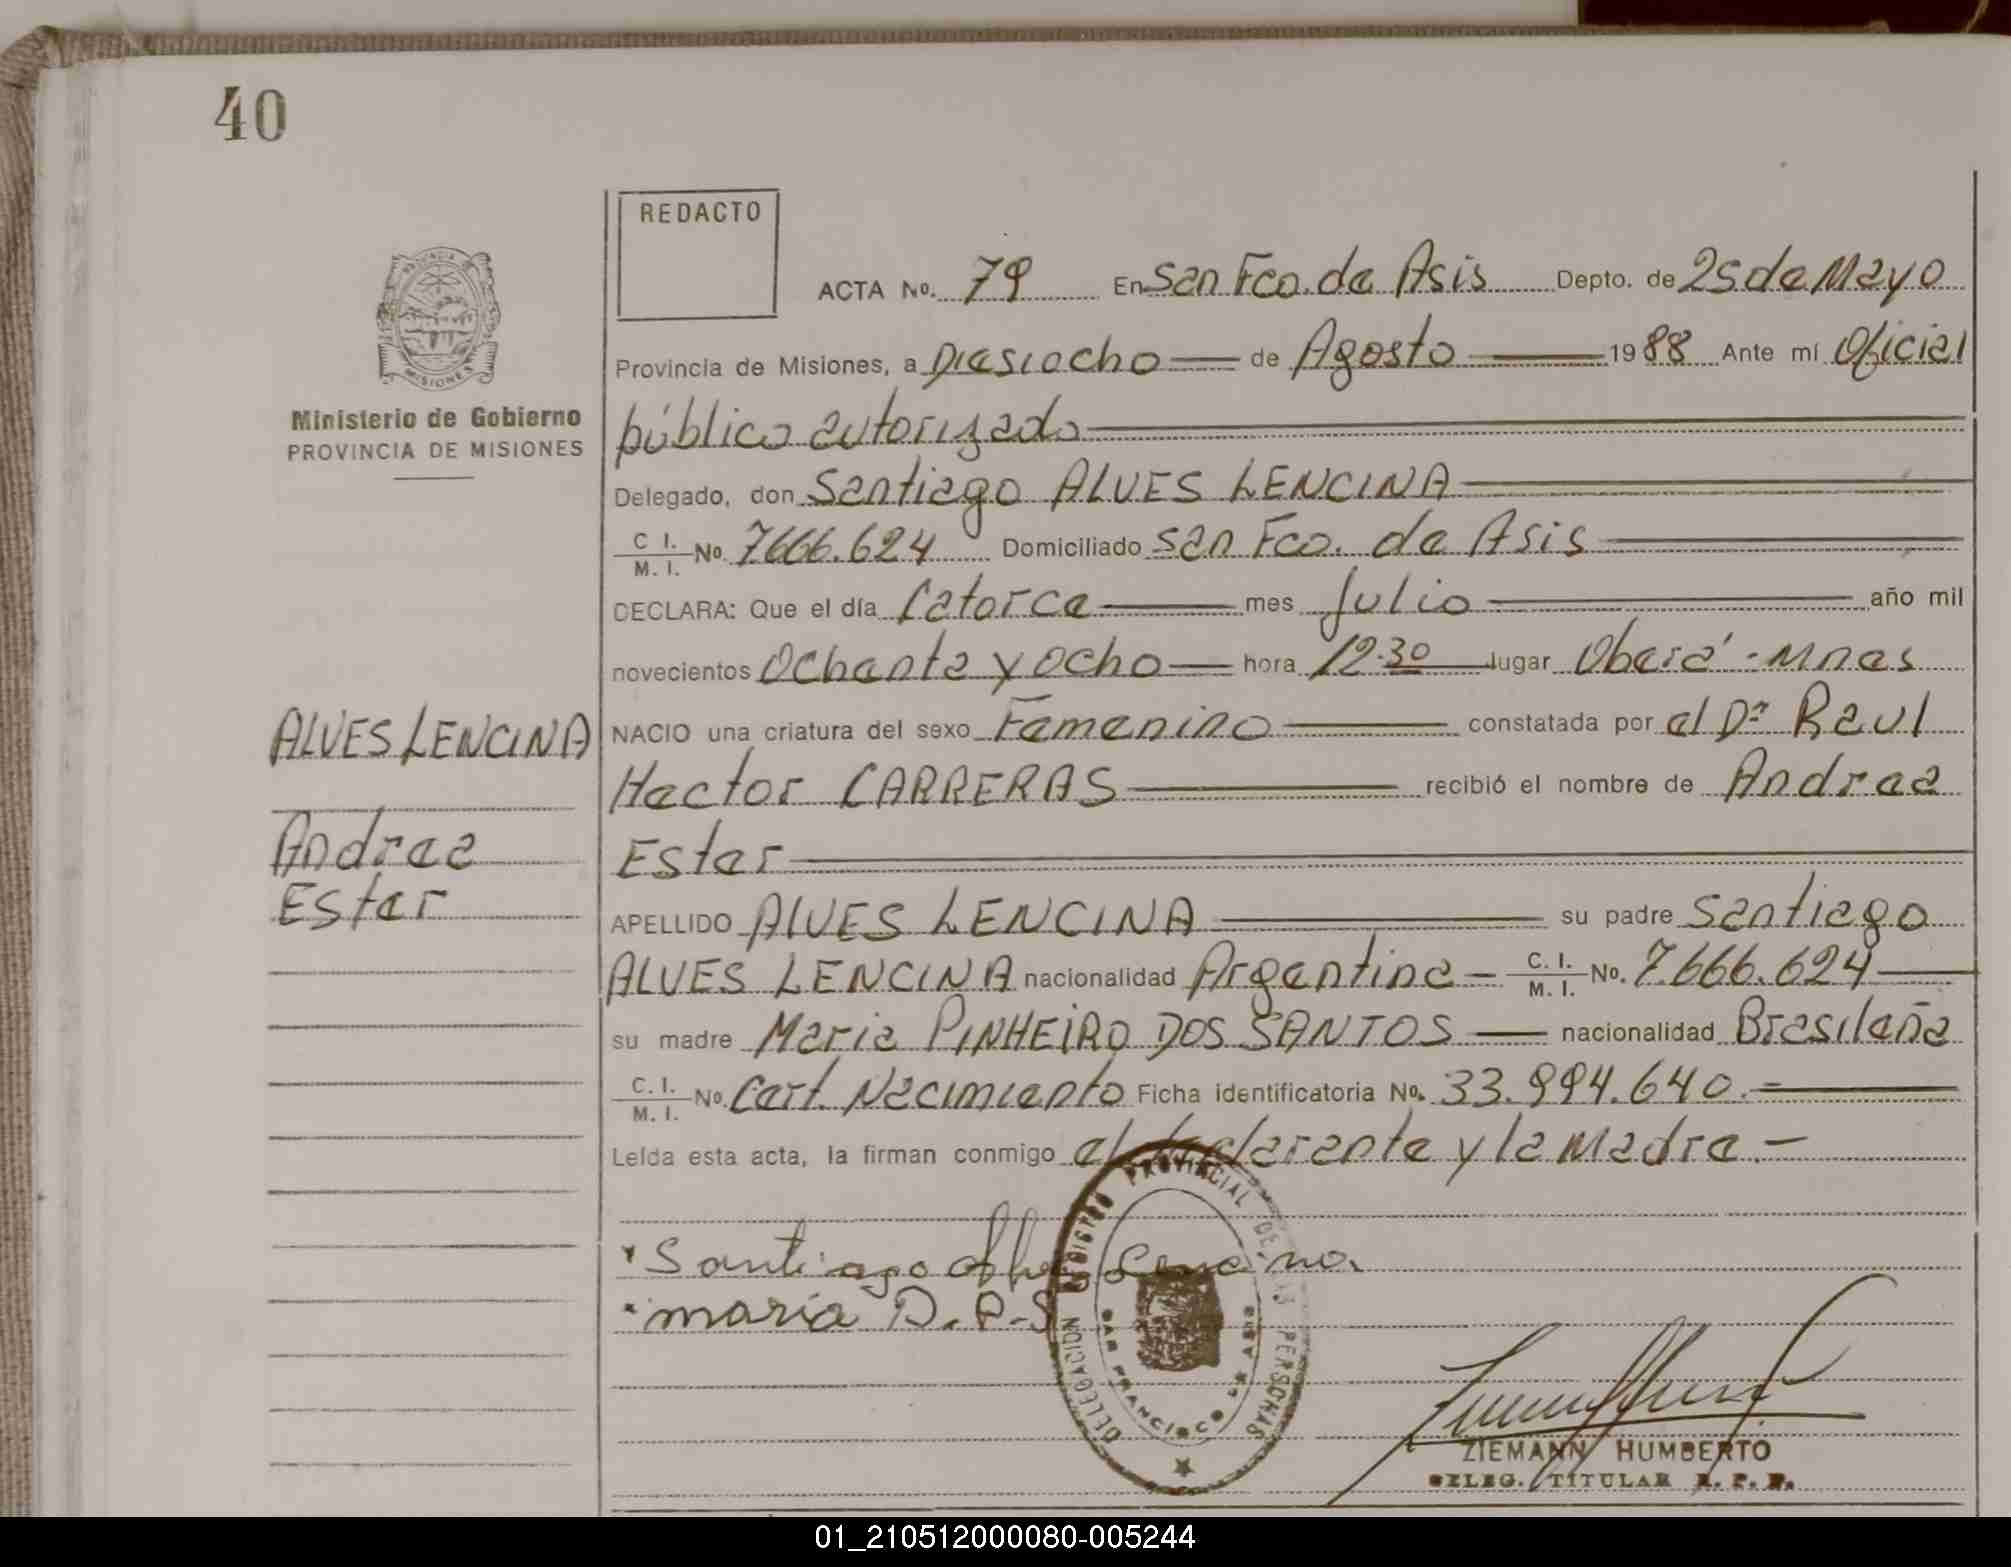 40
REDACTO
ACTA Nº. 79 En San Fco. de Asis Depto. de 25 de Mayo
Provincia de Misiones, a Diesiocho de Agosto 1988 Ante mí Oficial
público autorizado
Ministerio de Gobierno
PROVINCIA DE MISIONES
Delegado, don Santiago ALVES LENCINA
C I. M. I. Nº. 7666.624 Domiciliado San Fco. de Asis
DECLARA: Que el día Catorce mes Julio año mil
novecientos Ochenta y ocho hora 12.30 lugar Oberá - Mnes
ALVES LENCINA
NACIO una criatura del sexo Femenino constatada por el Dr. Raul
Hector CARRERAS recibió el nombre de Andrea
Andrea
Ester
Ester
APELLIDO ALVES LENCINA su padre Santiago
ALVES LENCINA nacionalidad Argentina C. I. M. I. Nº. 7.666.624
su madre Maria PINHEIRO DOS SANTOS nacionalidad Brasileña
C. I. M. I. Nº. Cert. Nacimiento Ficha identificatoria Nº. 33.994.640.=
Leída esta acta, la firman conmigo el declarante y la Madre.-
Santiago Alve Lencina
maria D. P. S
DELEGACION REGISTRO PROVINCIAL DE LAS PERSONAS
SAN FRANCISCO DE ASIS
MISIONES
ZIEMANN HUMBERTO
DELEG. TITULAR R. P. P.
01_210512000080-005244